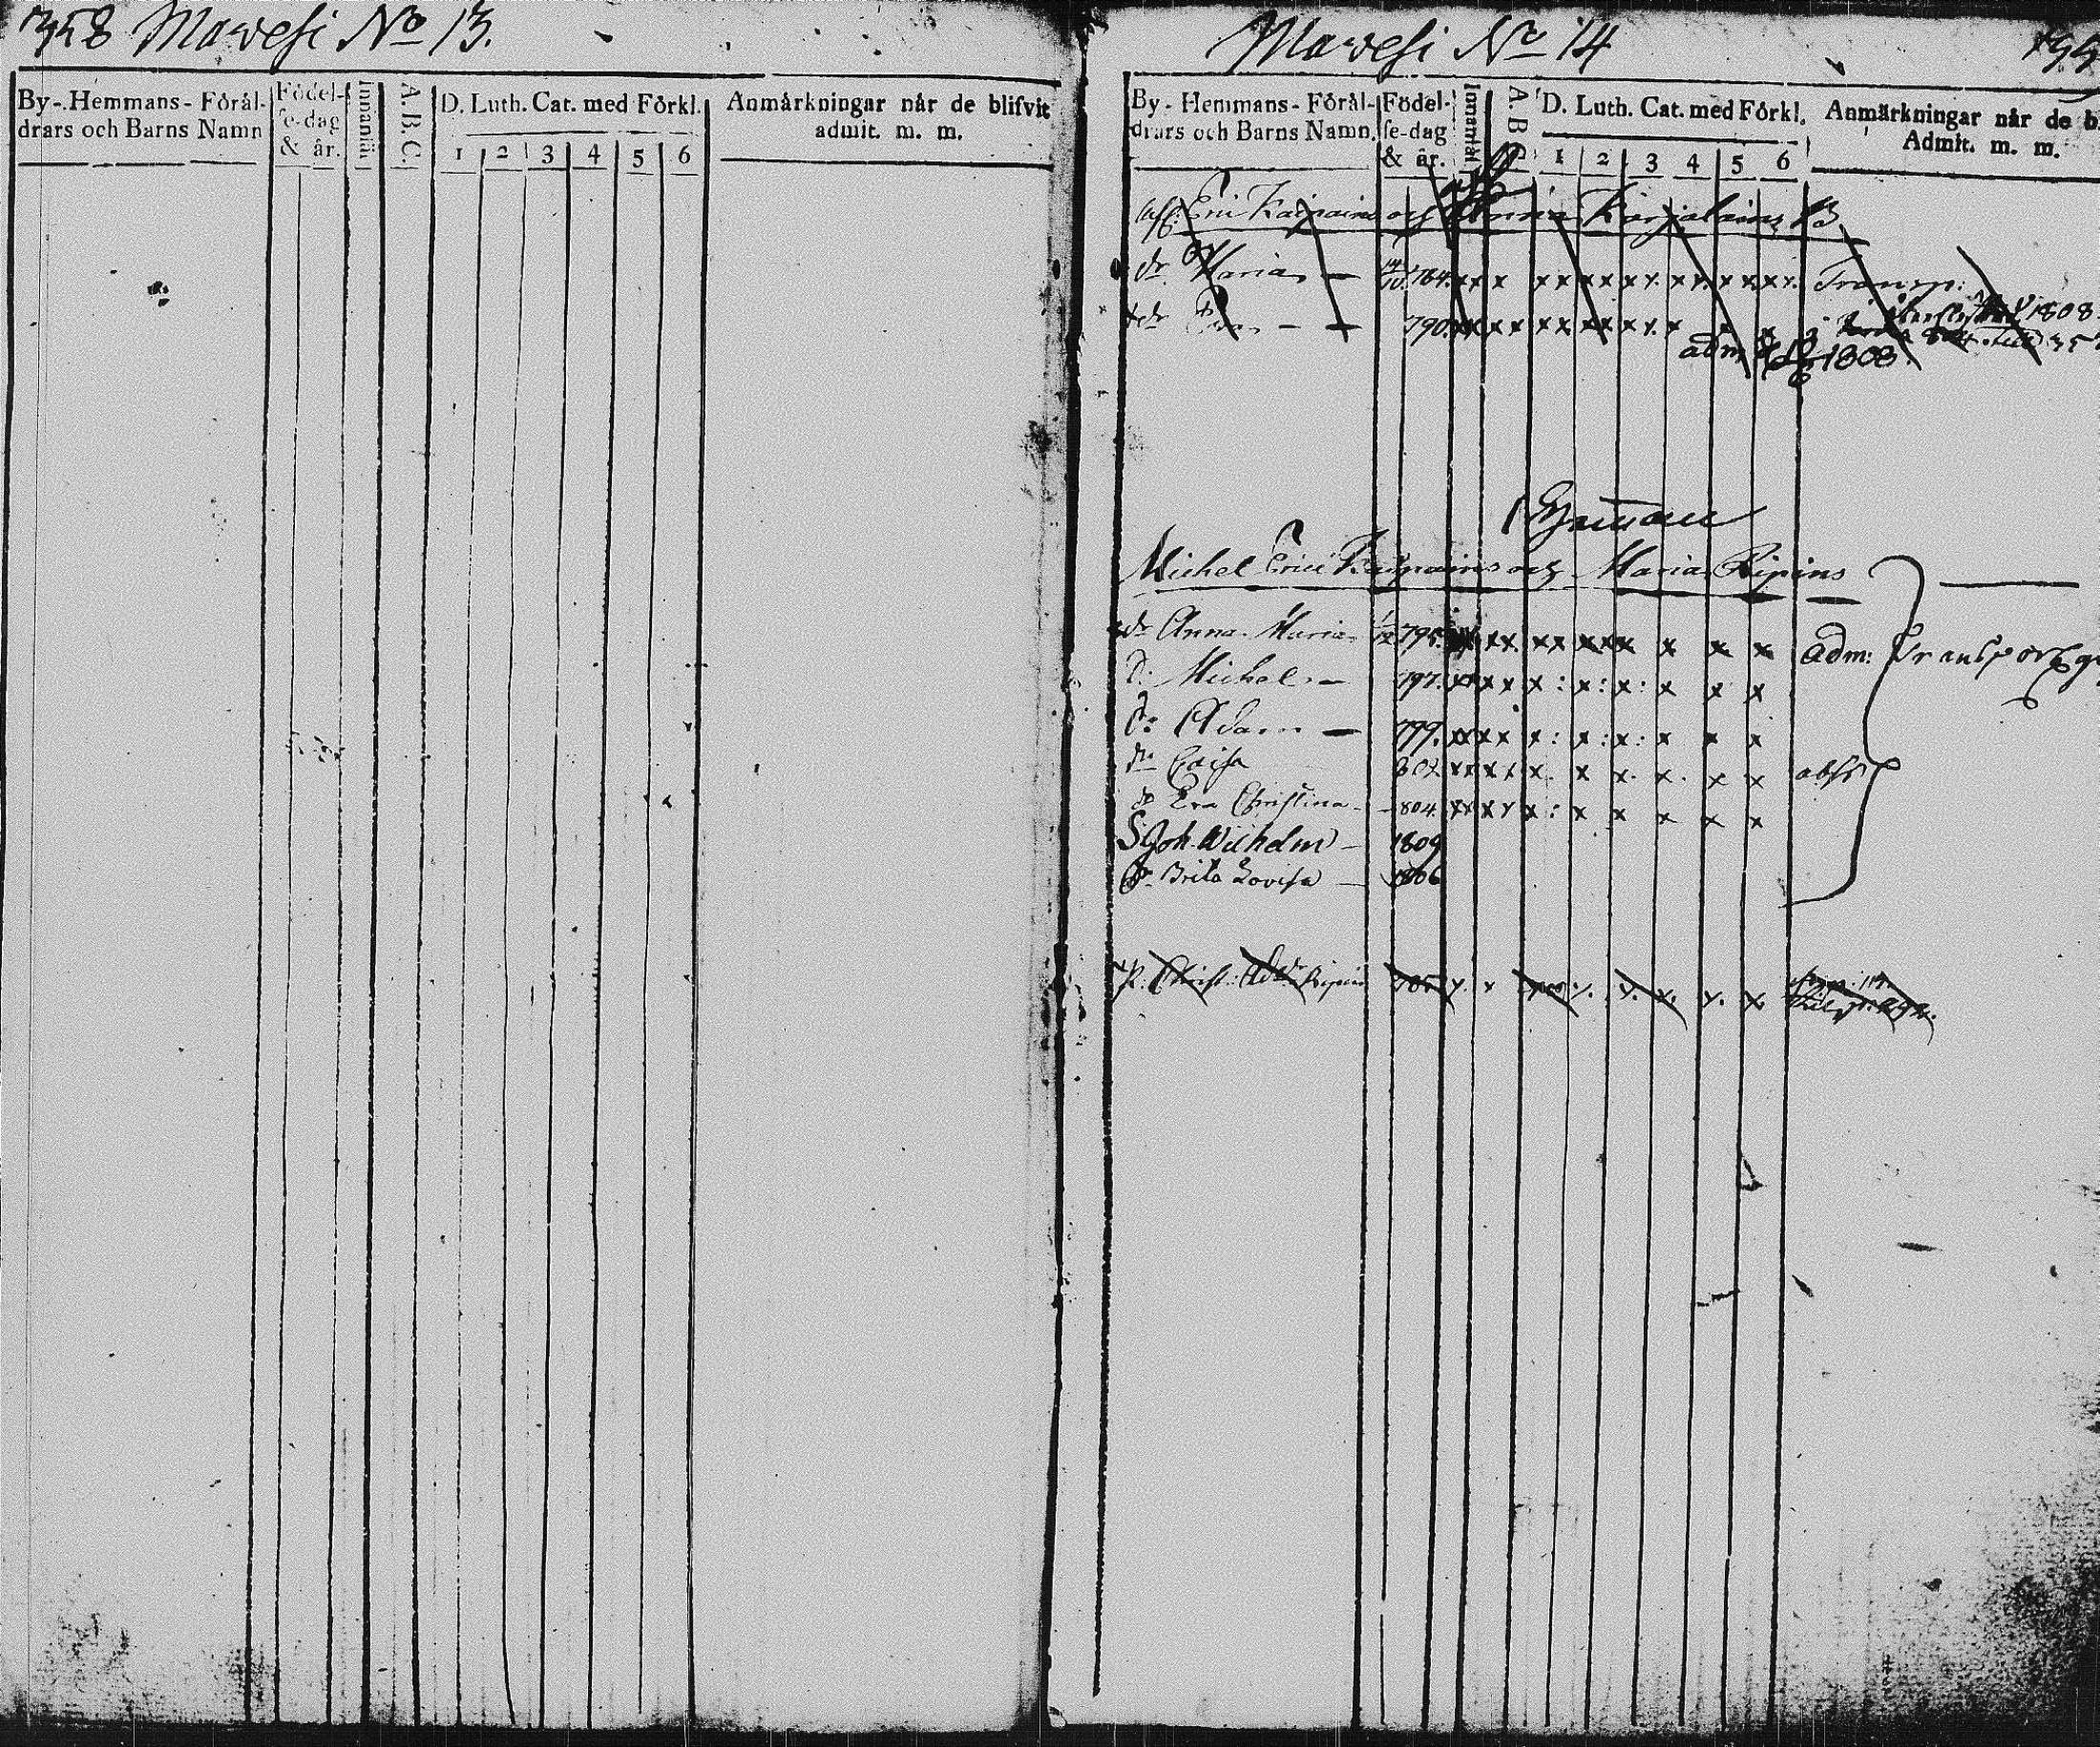 358 Mavesi No 13.
By-.Hemmans-Förål-
drars och Barns Namn
Födel-
se-dag
& år.
Innantil
A. B. C.
D. Luth. Cat. med Förkl.
1 2 3 4 5 6
Anmärkningar når de blifvit
admit. m. m.
Mavesi No 14
By- Hemmans- Förål-
drars och Barns Namn.
Födel-
se-dag
& år.
Innantil
A. B. C.
D. Luth. Cat. med Förkl.
1 2 3 4 5 6
Anmärkningar når de b
Admit. m. m.
Eric Kaipains och Anna Karjalains 13
dr Maria — 784. x x x x x x x x x x x x x x Transp:
dr — 790. x x x x x x x x x x x x 1808.
adm 1808.
Michel Erici Kaipains och Maria Ripins
dr Anna Maria 795. x x x x x x x x x x adm: Transport
S. Michel — 797. x x x x x : x : x : x x x
S. Adam — 799. x x x x x : x : x : x x x
dr Caisa 802 x x x x x. x x. x. x x
dr Eva Christina — 804. x x x x x : x x x x x
S Joh. Wilhelm — 1809
Dr Brita Lovisa — 1806
P. Christ: Ripin x. x x. x. x. x. x.